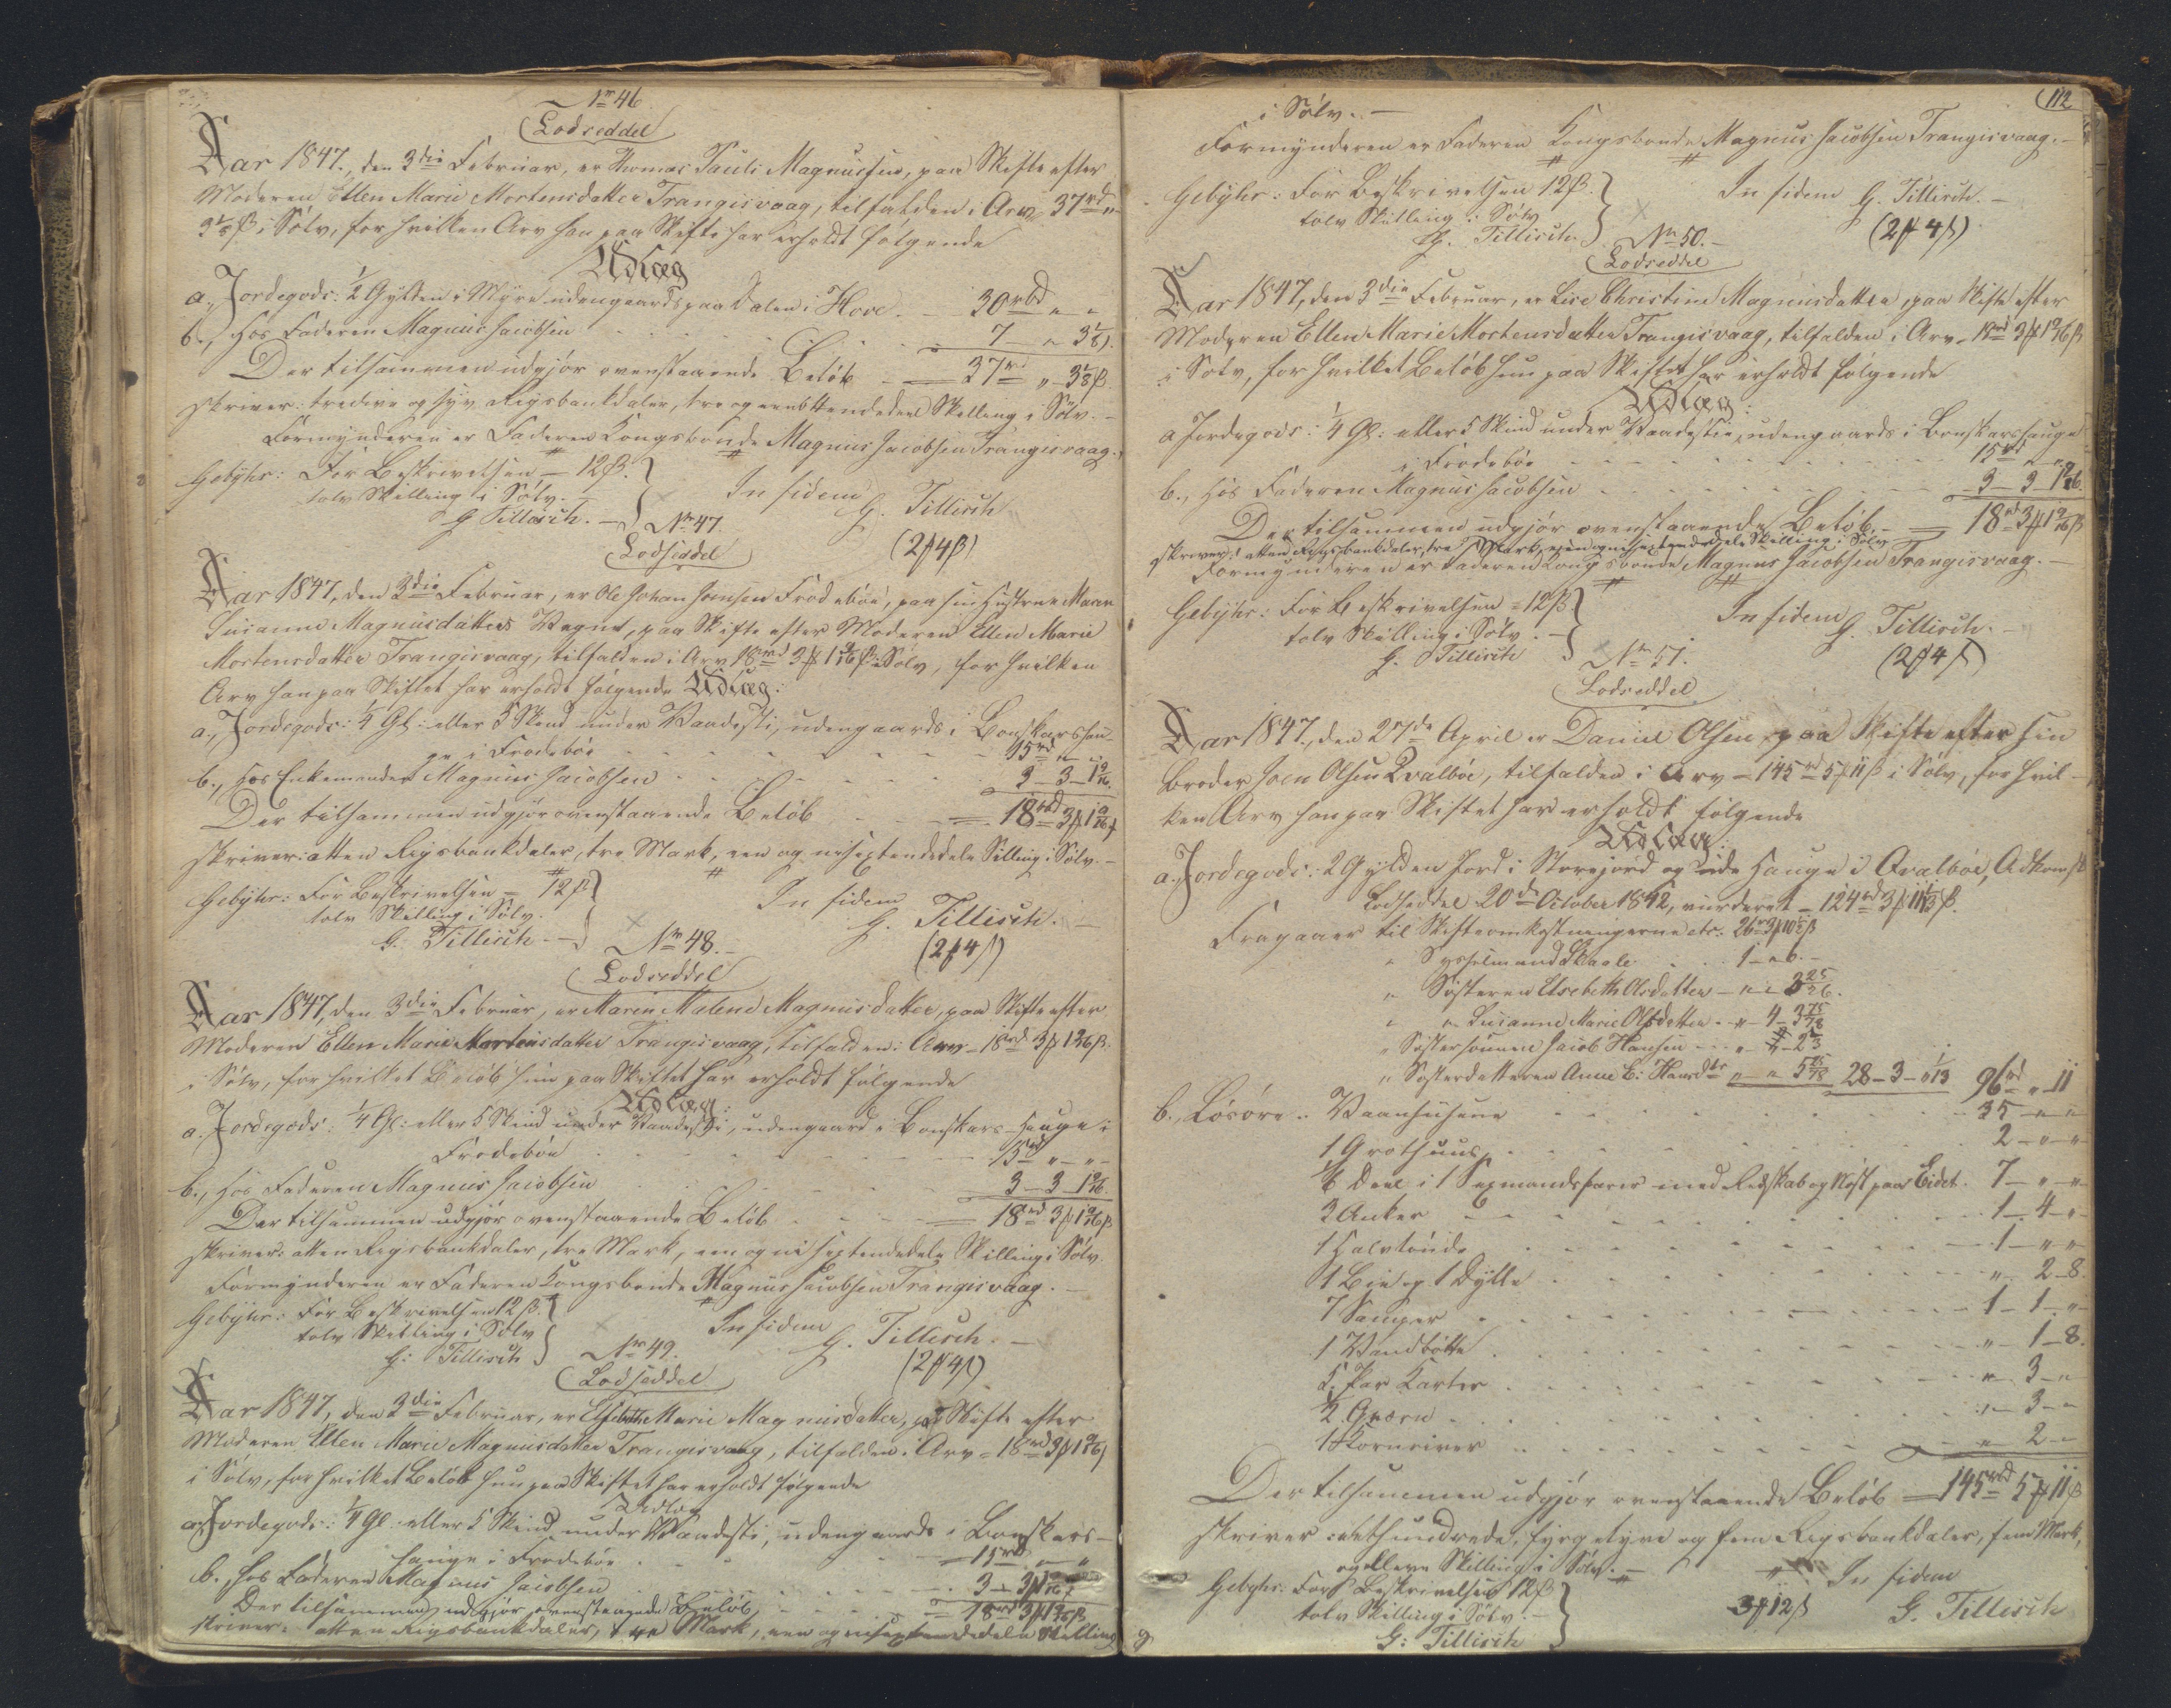 No 46
Lodseddel
Aar 1847, den 3die Februar, er Thomas Pauli Magnussen, paa Skifte efter
Moderen Ellen Marie Mortensdatter Trangisvaag, tilfalden i Arv 37rd "
3 1/8 β i Sølv, for hvilken Arv han paa Skifte har erholdt følgende
Udlæg
a., Jordegods: 1/2 Gylden i Myre udengaards paa Dalen i Hove. - 30rbd " "
b., hos Faderen Magnus Jacobsen 7 - " 3 1/8.
Der tilsammen udgjør ovenstaaende Beløb - 37rd " 3 1/8 β.
skriver: tredive og syv Rigsbankdaler, tre og een ottendedeel Skilling i Sølv. -
Formynderen er Faderen Kongsbonde Magnus Jacobsen Trangisvaag.
Gebyhr: For Beskrivelsen - 12 β.
tolv Skilling i Sølv. -
G Tillisch. -
In fidem
G. Tillisch
(2 4β)
No 47.
Lodseddel
Aar 1847, den 3die Februar, er Ole Johan Joensen Frodebøe, paa sin Hustrue Maren
Susanne Magnusdatters Vegne, paa Skifte efter Moderen Ellen Marie
Mortensdatter Trangisvaag, tilfalden i Arv 18rbd 3 1 9/16 β i Sølv, for hvilken
Arv han paa Skiftet har erholdt følgende Udlæg:
a., Jordegods: 1/4 Gl: eller 5 Skind under Vaadesti, udengaards i Bonskarshau-
ge i Frodebøe 15rd " "
b., hos Enkemanden Magnus Jacobsen 3 - 3 - 1 9/16.
Der tilsammen udgjør ovenstaaende Beløb 18rbd 3 1 9/16
skriver: atten Rigsbankdaler, tre Mark, een og nisextendedele Silling i Sølv. -
Gebyhr: For Beskrivelsen = 12 β
tolv Skilling i Sølv.
G. Tillisch -
In fidem
G. Tillisch. -
(2 4β)
No 48. -
Lodseddel
Aar 1847, den 3die Februar, er Maren Malene Magnusdatter, paa Skifte efter
Moderen Ellen Marie Mortensdatter Trangisvaag, tilfalden i Arv - 18rd 3 1 9/16 β.
i Sølv, for hvilket Beløb hun paa Skiftet har erholdt følgende
Udlæg:
a. Jordegods: 1/4 Gl: eller 5 Skind under Vaadesti, udengaard i Bonskars-Hauge i
Frodebøe 15rd " - " -
b., hos Faderen Magnus Jacobsen 3 - 3 1 9/16.
Der tilsammen udgjør ovenstaaende Beløb 18rd 3 1 9/16 β
skriver: atten Rigsbankdaler, tre Mark, een og ni sextendedele Skilling i Sølv.
Formynderen er Faderen Kongsbonde Magnus Jacobsen Trangisvaag. -
Gebyhr: For Beskrivelsen 12 β.
tolv Skilling i Sølv
G: Tillisch
In fidem
G. Tillisch. -
(2 4β)
No 49.
Lodseddel
Aar 1847, den 3die Februar, er Elsebeth Marie Magnusdatter, paa Skifte efter
Moderen Ellen Marie Magnusdatter Trangisvaag, tilfalden i Arv = 18rd 3 1 9/16
i Sølv, for hvilket Beløb hun paa Skiftet har erholdt følgende
Udlæg
a. Jordegods: 1/4 Gl. eller 5 Skind under Vaadesti, udengaards i Bonskars-
hauge i Frodebøe 15rd " "
b. hos Faderen Magnus Jacobsen 3 - 3 1 9/16
Der tilsammen udgjør ovenstaaende Beløb 18rd 3 1 9/16 β
skriver: atten Rigsbankdaler, tre Mark, een og nisextendedele Skilling
112
i Sølv. -
Formynderen er Faderen Kongsbonde Magnus Jacobsen Trangisvaag. -
Gebyhr: For Beskrivelsen 12 β.
tolv Skilling i Sølv
G. Tillisch
In fidem G. Tillisch. -
(2 4β)
No 50. -
Lodseddel
Aar 1847, den 3die Februar, er Lise Christine Magnusdatter, paa Skifte efter
Moderen Ellen Marie Mortensdatter Trangisvaag, tilfalden i Arv - 18rd 3 1 9/16 β
i Sølv, for hvilket Beløb hun paa Skiftet har erholdt følgende
Udlæg:
a Jordegods: 1/4 Gl: eller 5 Skind under Vaadestie, udengaards i Bonskarshauge
i Frodebøe 15rd " "
b., hos Faderen Magnus Jacobsen 3 - 3 - 1 9/16.
Der tilsammen udgjør ovenstaaende Beløb. - 18rd 3 1 9/16 β
skriver: atten Rigsbankdaler, tre Mark, een og nisextendedele Skilling i Sølv
Formynderen er Faderen Kongsbonde Magnus Jacobsen Trangisvaag. -
Gebyhr: For Beskrivelsen = 12 β
tolv Skilling i Sølv. -
G. Tillisch
In fidem
G. Tillisch. -
(2 4β)
No 51.
Lodseddel
Aar 1847, den 27de April er Daniel Olsen, paa Skifte efter sin
Broder Joen Olsen Qvalbøe, tilfalden i Arv - 145rd 5 11 β i Sølv, for hvil-
ken Arv han paa Skiftet har erholdt følgende
Udlæg:
a. Jordegods: 2 Gylden Jord i Storejord og Hauge i Qvalbøe, Adkomst
Lodseddel 20de October 1842, vurderet - 124rd 3 11 1/13 β.
Fragaaer til Skifteomkostningerne etc: 26rd 3 10 β
" Sysselmand 1 - " 6. -
" Søsteren Elsebeth Olsdatter - " - 3 25/26.
" " Susanne Marie Olsdatter - " 4 - 3
" Søstersønnen Jacob Hansen - - "
" Søsterdatteren Anne E. Hansdtr " " 5 28 - 3 - " 1/13 96rd " 11
b., Løsøre: Vaanhusene 35 - " "
1 Grothuus, 2 - " "
1/6 Deel i 1 Sexmandsfarer med Redskab og Nøst paa Eidet. 7 - " - "
3 Anker 1 - 4 - "
1 Halvtønde 1 - " "
1 Bie og 1 Dylle " - 2 - 8.
7 Samper 1 - 1 - "
1 Vandbøtte " - 1 - 8.
5 Par Karter " - 3 - "
2 Qværn " - 3 - "
1 Kornriver " 2 - "
Der tilsammen udgjør ovenstaaende Beløb - 145rbd 5 11 β
skriver: eethundrede, fyrgetyve og fem Rigsbankdaler, fem Mark,
og elleve Skilling i Sølv. -
Gebyhr: For Beskrivelsen 12 β
tolv Skilling i Sølv. -
G: Tillisch
3 12 β
In fidem
G. Tillisch